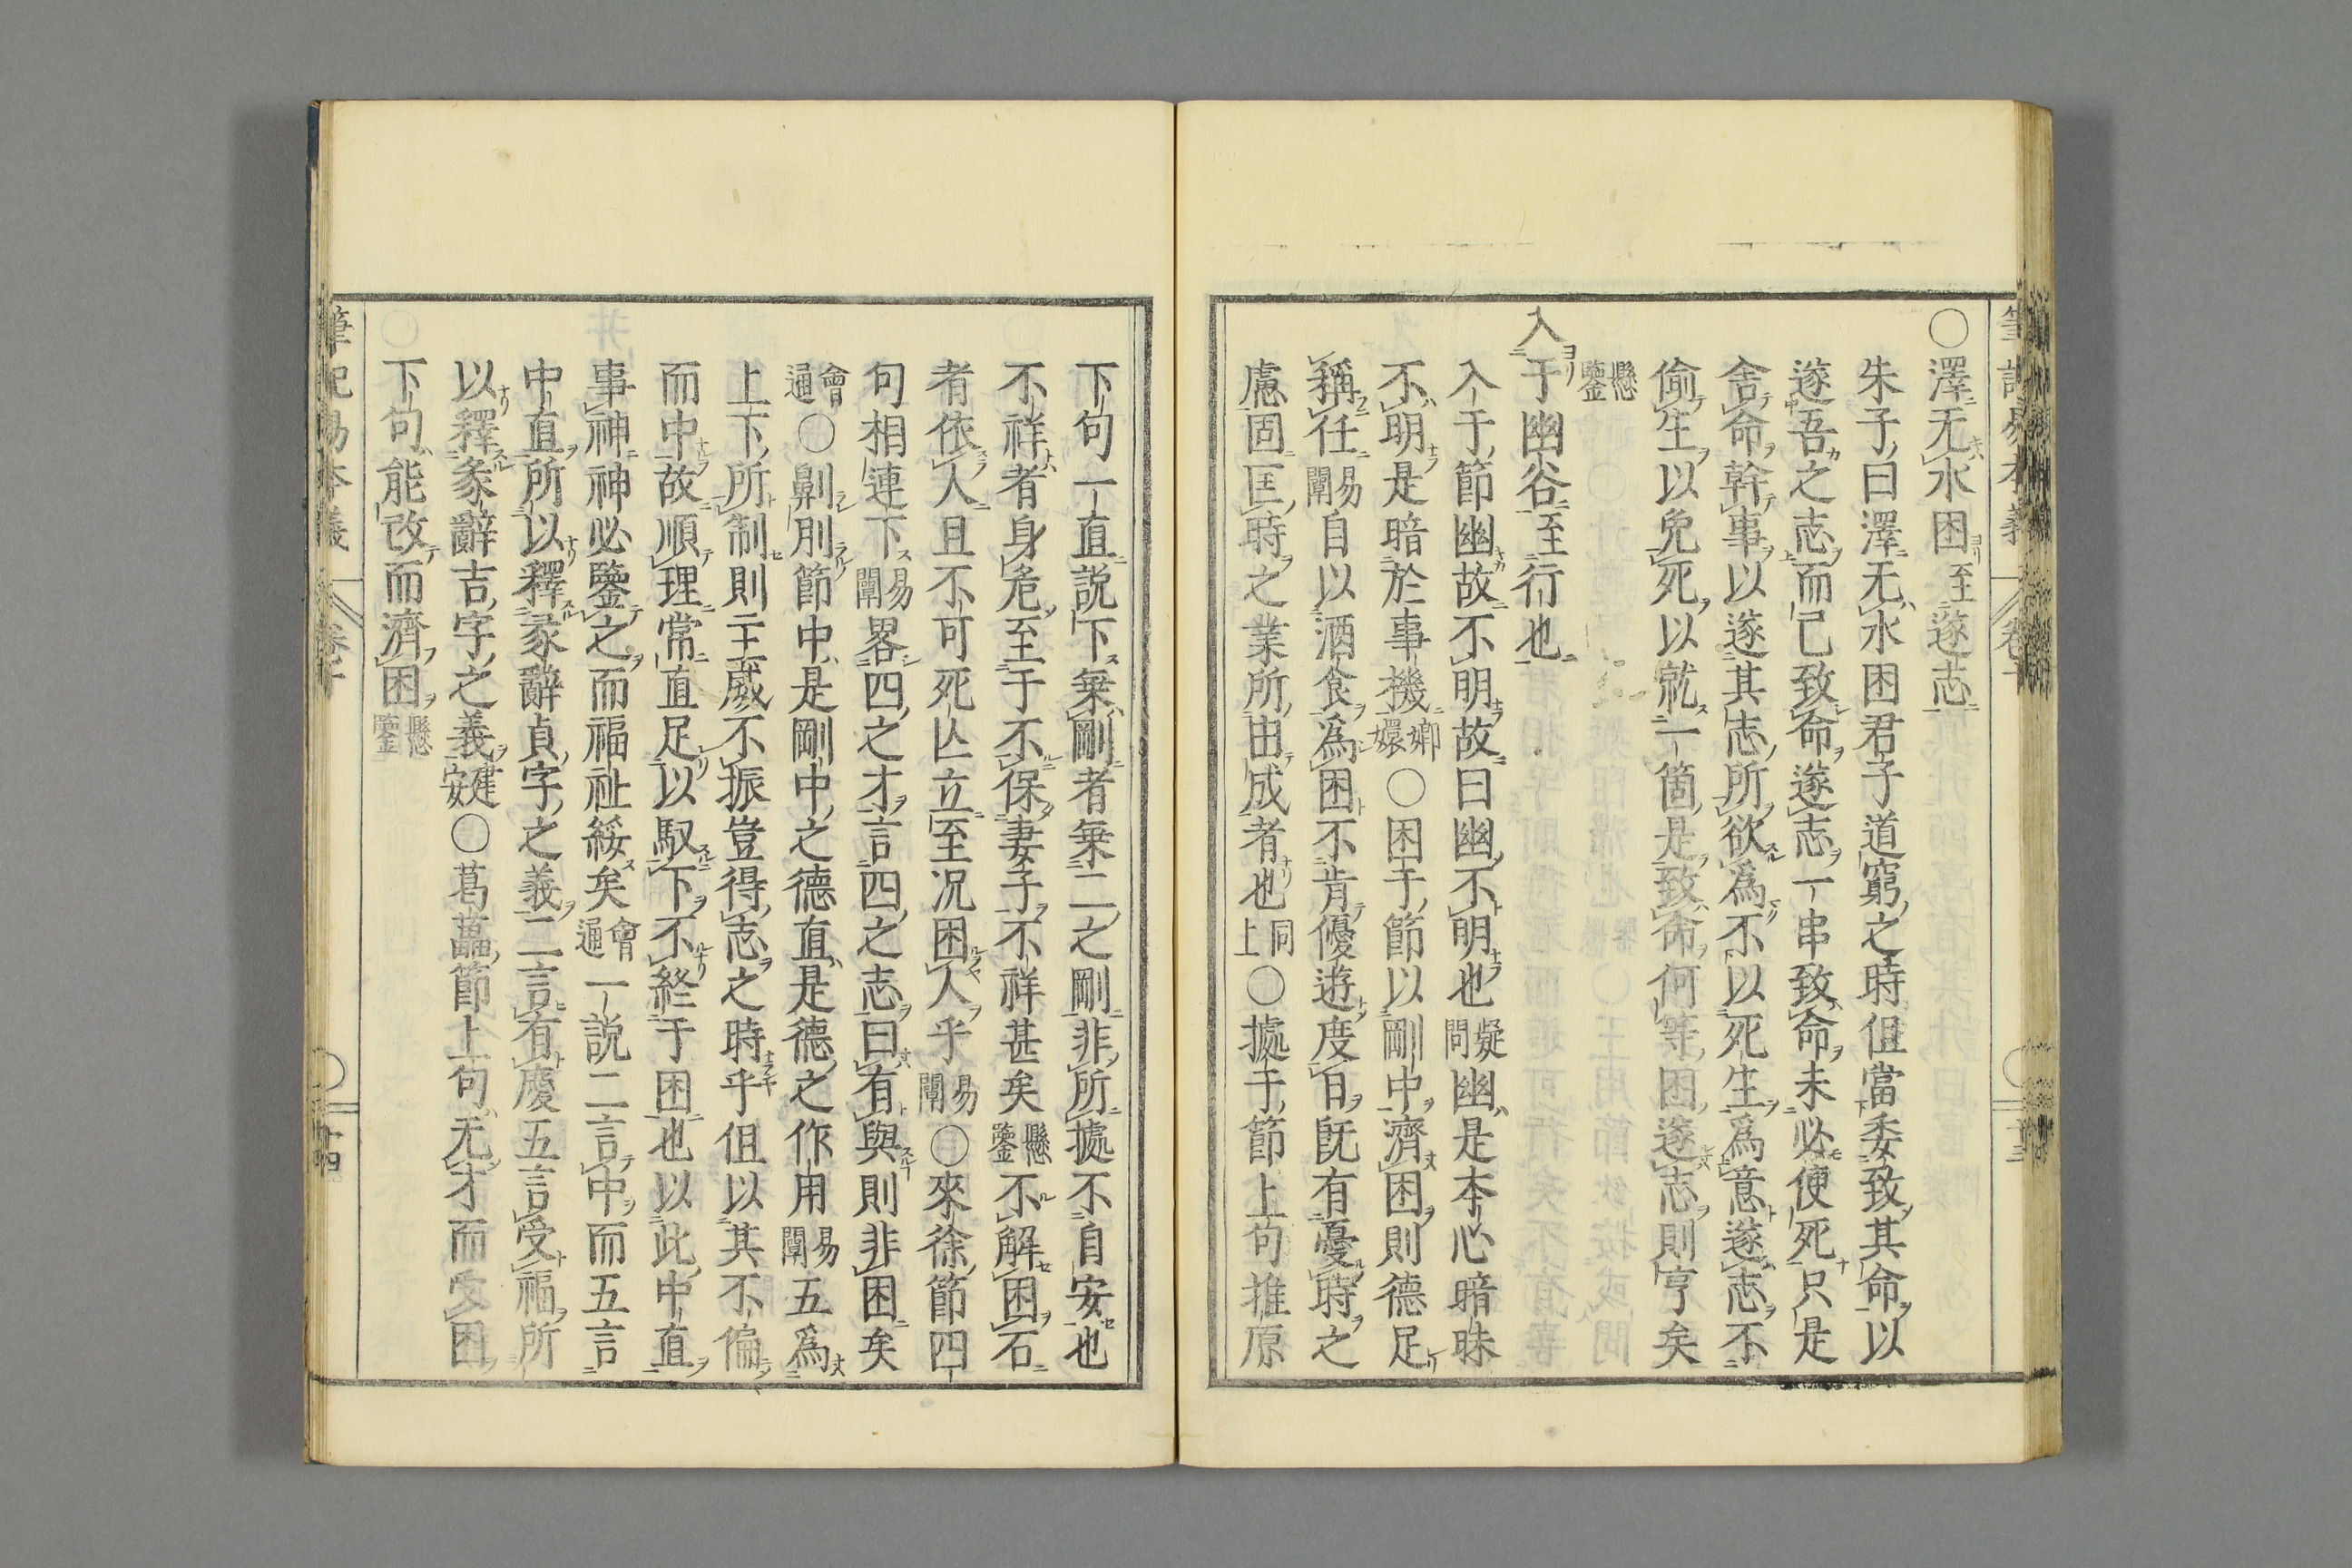 ○澤无水困至遂志
朱子曰澤无水困君子道窮之時但當委致其命以
遂吾之志而已致命遂志一串致命未必便死只是
舍命幹事以遂其志所欲為不以死生為意遂志不
偷生以免死以就一箇是致命何等困遂志則亨矣
懸鑒
入于幽谷至行也
入于節幽故不明故曰幽不明也疑問幽是本心暗昧
不明是暗於事機嫏嬛○困于節以剛中濟困則德足
稱任易闡自以酒食為困不肯優遊度日既有憂時之
慮固匡時之業所由成者也同上○據于節上句推原
下句一直説下乗剛者乗二之剛非所據不自安也
不祥者身危至于不保妻子不祥甚矣懸鑒不解困石
者依人且不可死亾立至况困人乎易闡○來徐節四
句相連下易闡畧四之才言四之志曰有與則非困矣
會通○劓刖節中是剛中之德直是德之作用易闡五為
上下所制則主威不振豈得志之時乎但以其不偏
而中故順理常直足以馭下不終于困也以此中直
事神神必鑒之而福祉綏矣會通一説二言中而五言
中直所以釋彖辭貞字之義二言有慶五言受福所
以釋彖辭吉字之義建安○葛藟節上句无才而受困
下句能改而濟困懸鑒
筆記易本義 卷十 ○ 十四